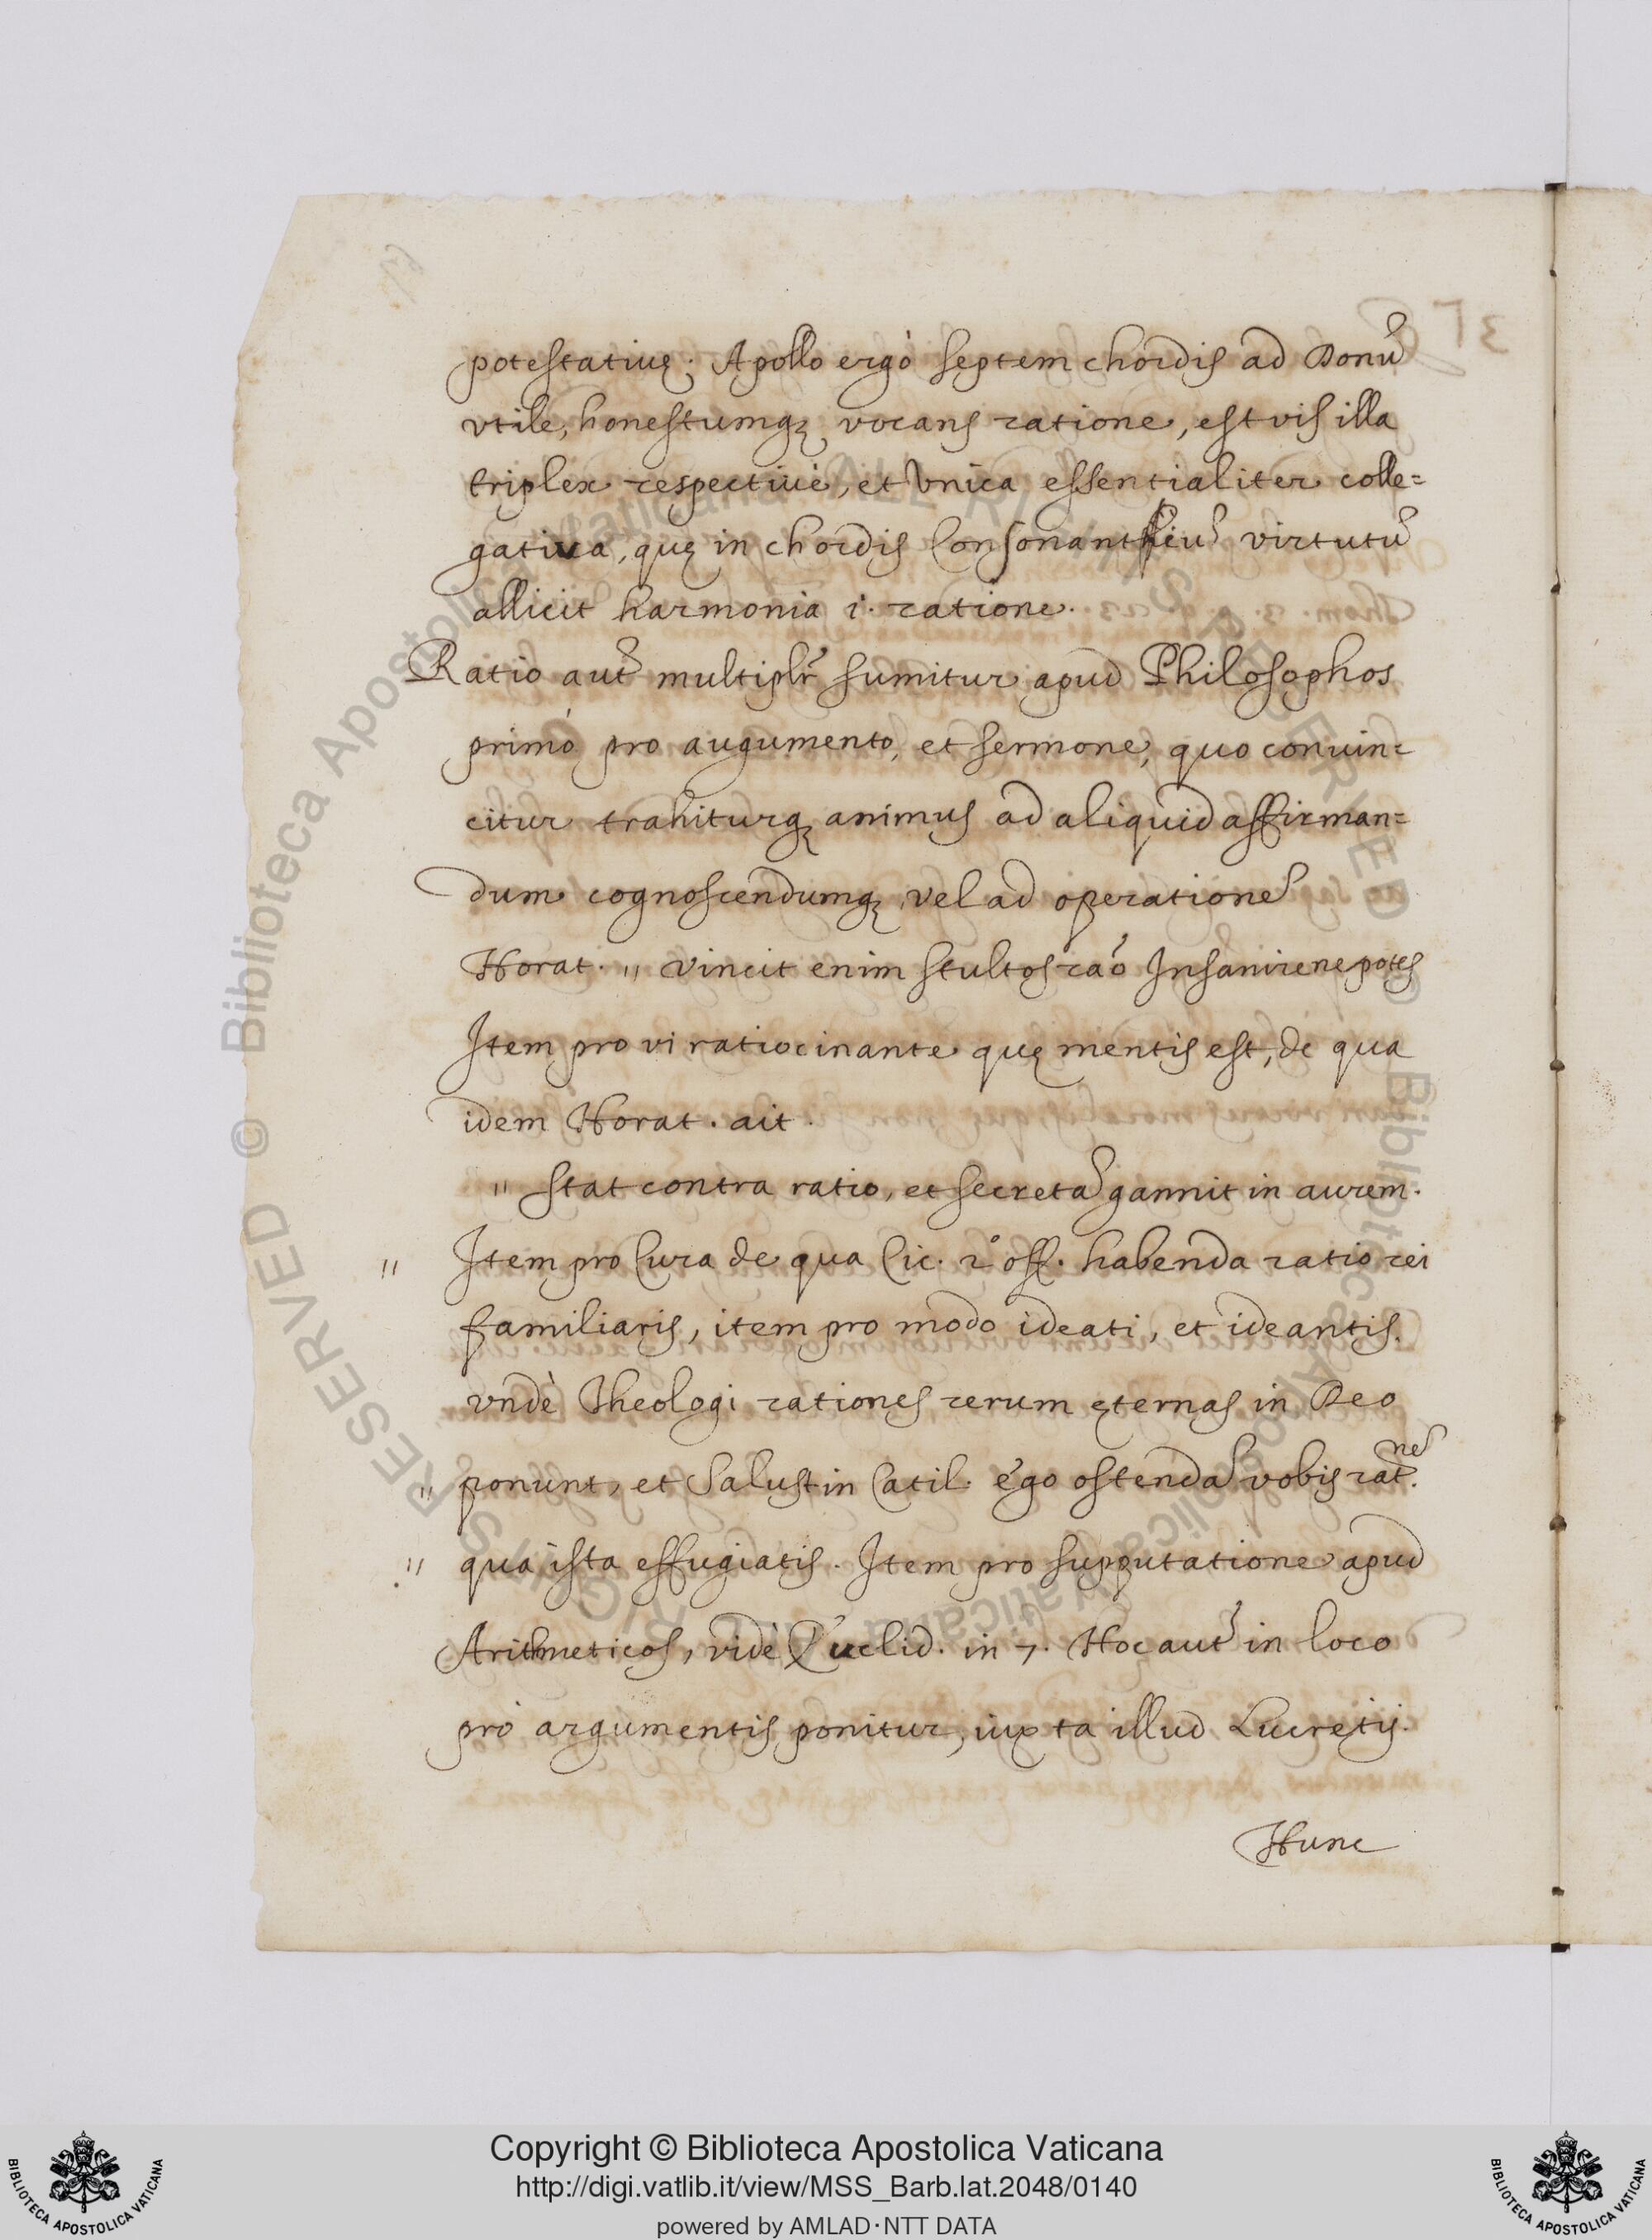 potestatiuę. Apollo ergò septem chordis ad Bonu᷈
vtile, honestumq; vocans ratione, est vis illa
triplex respectiuè, et vnica essentialiter colle=
gativa, quę in chordis virtutu᷈
allicit harmonia i. ratione.
Ratio aut᷈ multiplr᷈ sumitur apud Philosophos
primò pro augumento, et sermone, quo conuin=
citur trahiturq; animus ad aliquid affirman=
dum cognoscendumq; vel ad operatione᷈
Horat. " vincit enim stultos raō Insanire ne potes
Item pro vi ratiocinante quę mentis est, de qua
idem Horat. ait.
" Stat contra ratio, et secreta᷈ gannit in aurem.
" Item pro Cura de qua Cic. 2° off. habenda ratio rei
familiaris, item pro modo ideati, et ideantis.
vndè Theologi rationes rerum ęternas in Deo
" ponunt, et Salust in Catil. ego ostenda᷈ vobis rat.ne᷈
" qua ista effugiatis. Item pro supputatione apud
Arithmeticos, vide Euclid. in 7. Hoc aut᷈ in loco
pro argumentis ponitur, iuxta illud Lucretij.
Hunc
Copyright © Biblioteca Apostolica Vaticana
http://digi.vatlib.it/view/MSS_Barb.lat.2048/0140
powered by AMLAD·NTT DATA
BIBLIOTECA APOSTOLICA VATICANA
BIBLIOTECA APOSTOLICA VATICANA